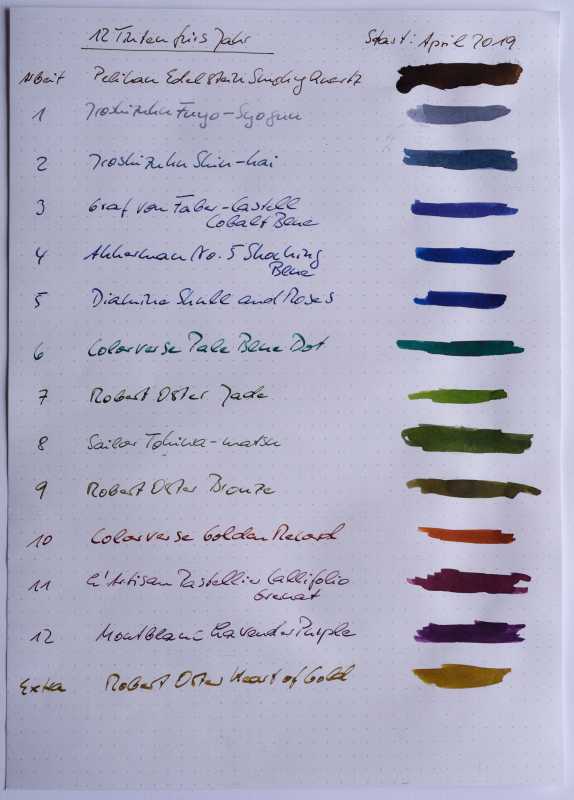 12 Tinten fürs Jahr Start: April 2019
Arbeit Pelikan Edelstein Smoky Quartz
1 Iroshizuku Fuyo-Syogun
2 Iroshizuku Shin-kai
3 Graf von Faber-Castell
Cobalt Blue
4 Akkerman No. 5 Shocking
Blue
5 Diamine Skull and Roses
6 Colorverse Pale Blue Dot
7 Robert Oster Jade
8 Sailor Tokiwa-matsu
9 Robert Oster Bronze
10 Colorverse Golden Record
11 L'Artisan Pastellier Callifolio
Grenat
12 Montblanc Lavender Purple
Extra Robert Oster Heart of Gold